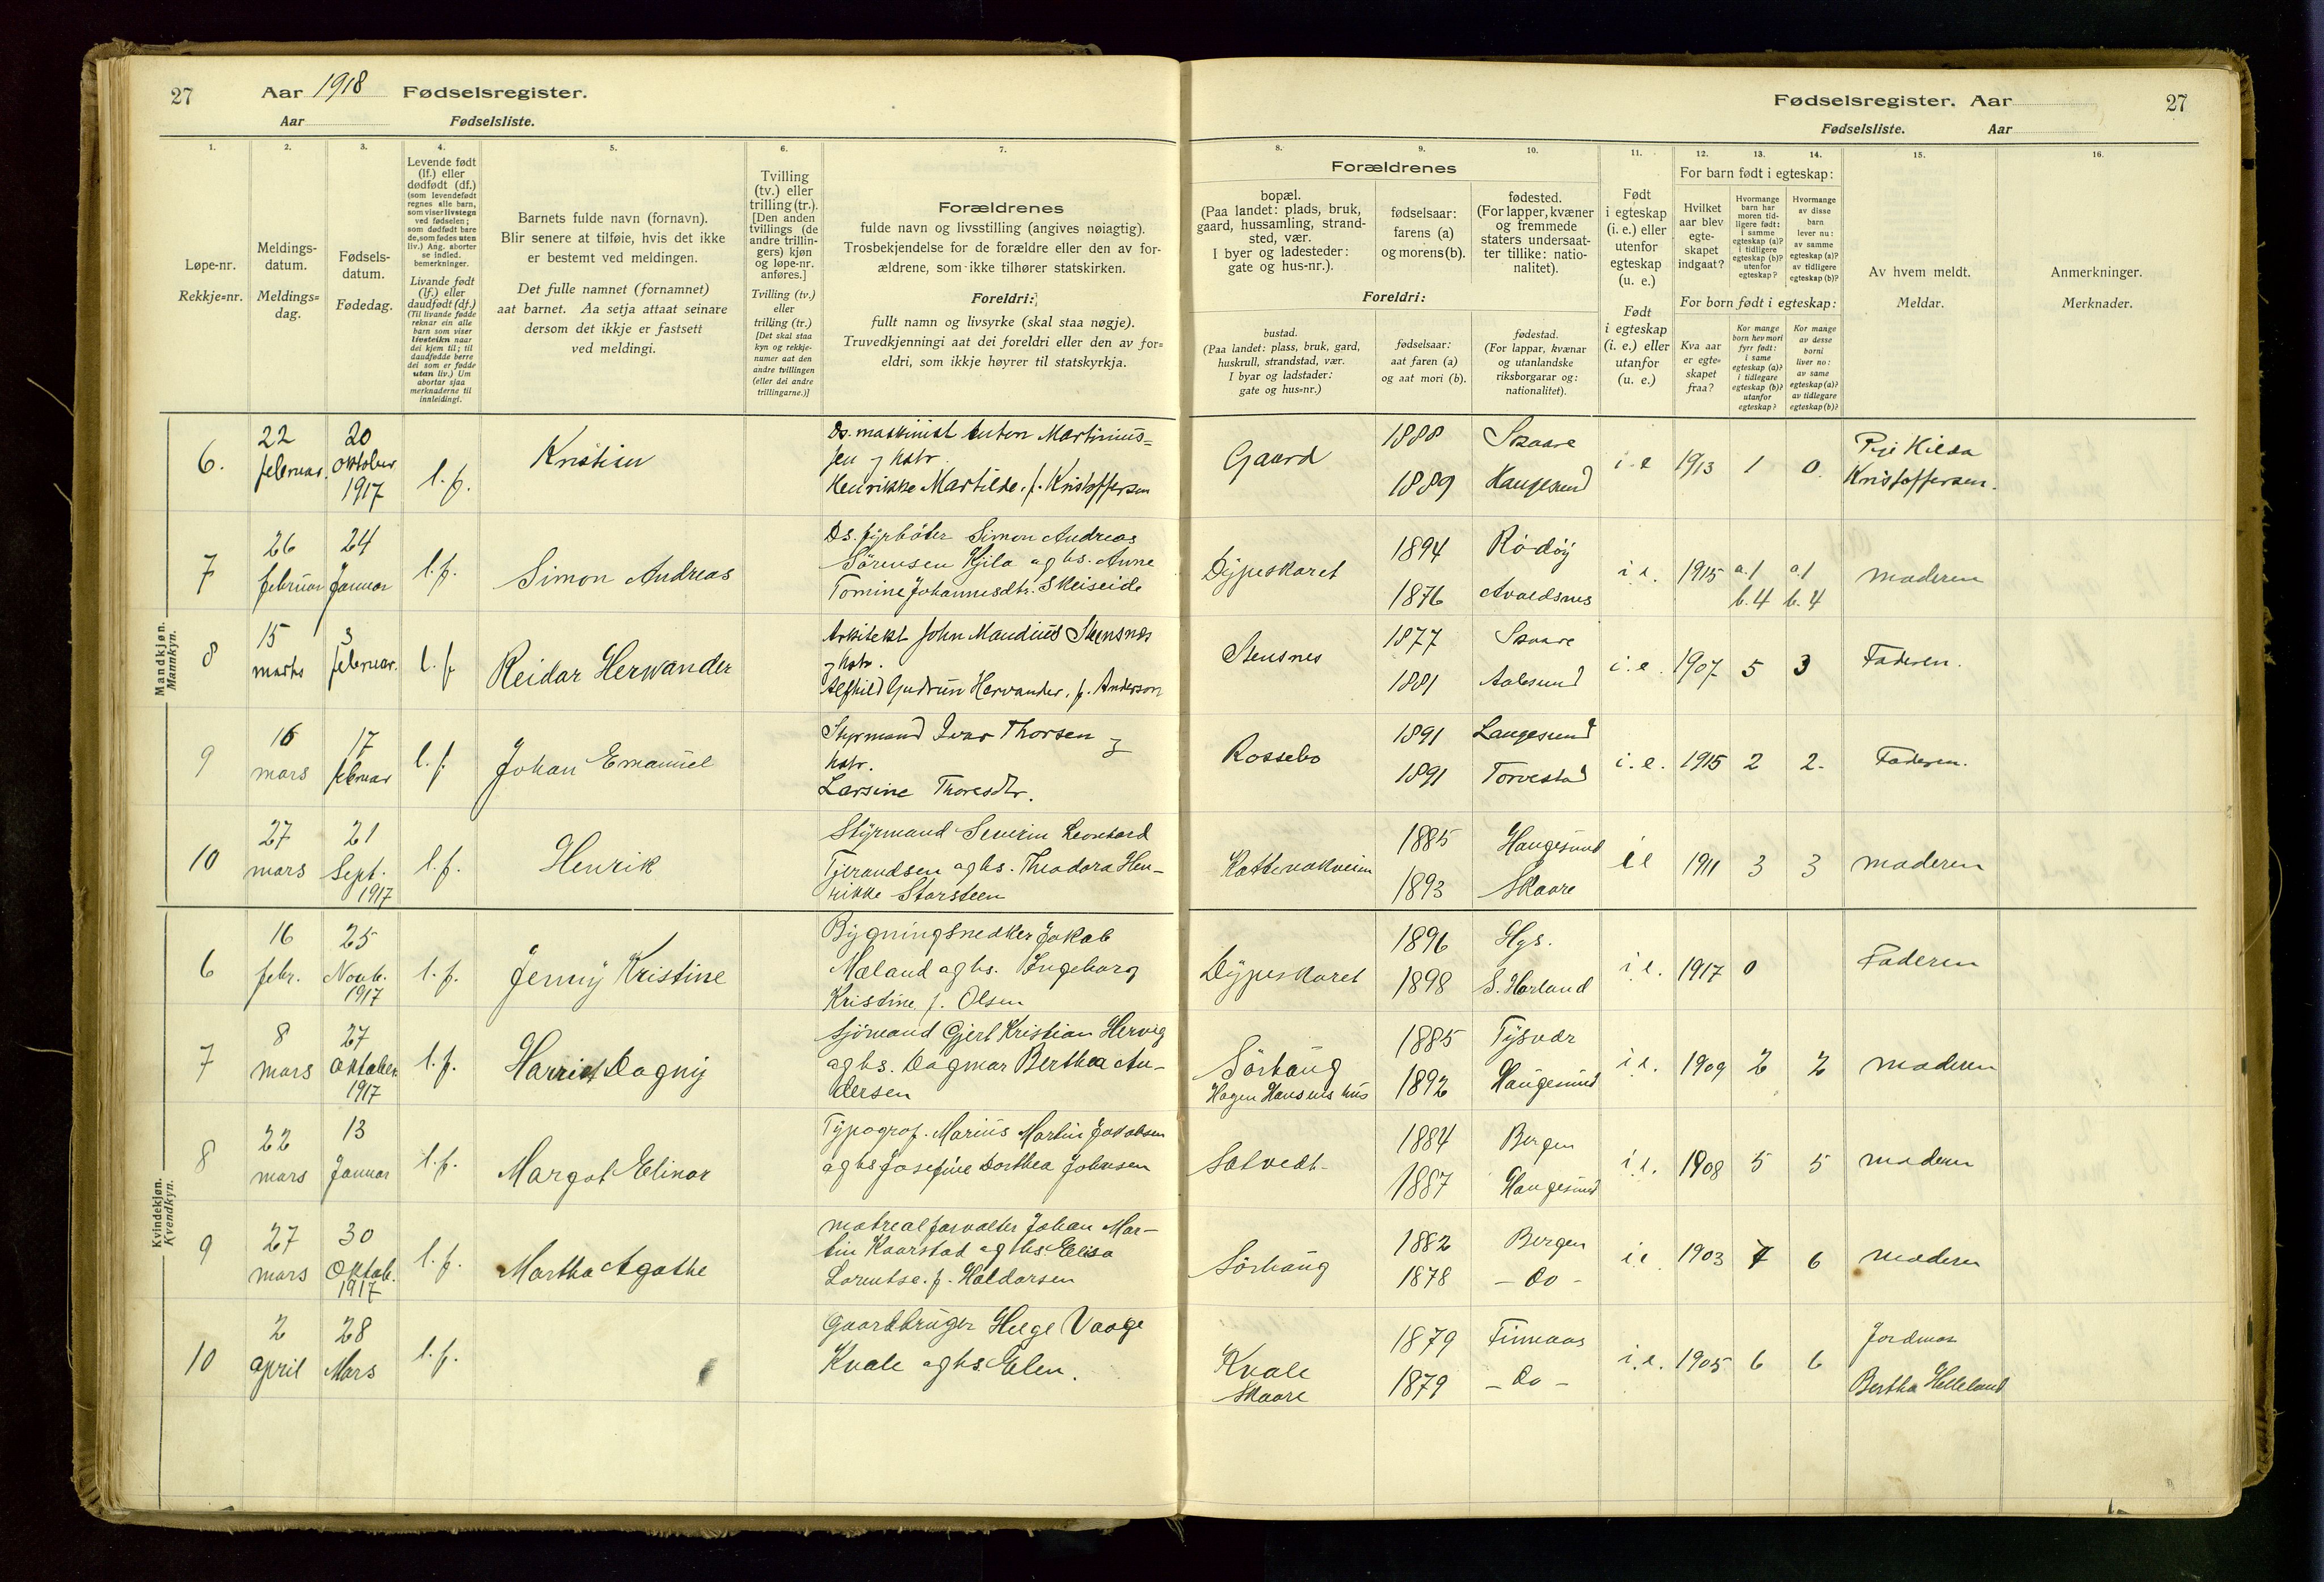 27 Aar 1918 Fødselsregister.
Aar Fødselsliste.
Fødselsregister. Aar 27
Fødselsliste. Aar
1. 2. 3. 4. 5. 6. 7. 8. 9. 10. 11. 12. 13. 14. 15. 16.
Løpe-nr.
Rekkje=nr.
Meldings-
datum.
Meldings=
dag.
Fødsels-
datum.
Fødedag.
Levende født
(lf.) eller
dødfødt (df.)
(som levendefødt
regnes alle barn,
som viser livstegn
ved fødselen;
som dødfødt bare
de, som fødes uten
liv.) Ang. aborter
se indled.
bemerkninger.
Livande født
(lf.) eller
daudfødt (df.)
(Til livande fødde
reknar ein alle
born som viser
livsteikn naar
dei kjem til; til
daudfødde berre
dei som er fødde
utan liv.) Um
abortar sjaa
merknaderne til
innleidingi.
Barnets fulde navn (fornavn).
Blir senere at tilføie, hvis det ikke
er bestemt ved meldingen.
Det fulle namnet (fornamnet)
aat barnet. Aa setja attaat seinare
dersom det ikkje er fastsett
ved meldingi.
Tvilling
(tv.) eller
trilling (tr.).
[Den anden
tvillings (de
andre trillin-
gers) kjøn
og løpe-nr.
anføres.]
Tvilling (tv.)
eller
trilling (tr.)
[Det skal staa
kyn og rekkje-
numer aat den
andre tvillingen
(eller dei andre
trillingarne.)]
Forældrenes
fulde navn og livsstilling (angives nøiagtig).
Trosbekjendelse for de forældre eller den av for-
ældrene, som ikke tilhører statskirken.
Foreldri:
fullt namn og livsyrke (skal staa nøgje).
Truvedkjenningi aat dei foreldri eller den av for=
eldri, som ikkje høyrer til statskyrkja.
Forældrenes
bopæl.
(Paa landet: plads, bruk,
gaard, hussamling, strand-
sted, vær.
I byer og ladesteder:
gate og hus-nr.).
fødselsaar:
farens (a)
og morens (b).
fødested.
(For lapper, kvæner
og fremmede
staters undersaat-
ter tillike: natio-
nalitet).
Foreldri:
bustad.
(Paa landet: plass, bruk, gard,
huskrull, strandstad, vær.
I byar og ladstader:
gate og hus=nr.)
fødselsaar:
aat faren (a)
og aat mori (b).
fødestad.
(For lappar, kvænar
og utanlandske
riksborgarar og:
nationalitet).
Født
i egteskap
(i. e.) eller
utenfor
egteskap
(u. e.)
Født
i egteskap
(i. e.) eller
utanfor
(u. e.)
For barn født i egteskap:
Hvilket
aar blev
egte-
skapet
indgaat?
Hvormange
barn har
moren tid-
ligere født:
i samme
egteskap (a)?
i tidligere
egteskap (b)?
utenfor
egteskap?
Hvormange
av disse
barn
lever nu:
av samme
egteskap (a)?
av tidligere
egteskap (b)?
For born født i egteskap:
Kva aar
er egte=
skapet
fraa?
Kor mange
born hev mori
fyrr født:
i same
egteskap (a)?
i tidlegare
egteskap (b)?
utanfor
egteskap?
Kor mange
av desse
borni
liver no:
av same
egteskap (a)?
av tidlegare
egteskap (b)?
Av hvem meldt.
Meldar.
Anmerkninger.
Merknader.
Mandkjøn.
Mannkyn.
6. 22 februar. 20 oktober 1917 l. f. Kristian
Ds. maskinist Anton Martinius=
sen og hstr.
Henrikke Martilde. f. Kristoffersen
Gaard 1888 Skaare i. e 1913 1 0 Pige Hilda
1889 Haugesund Kristoffersen.
7 26 februar 24 Januar l. f. Simon Andreas
Ds. fyrbøter Simon Andreas
Sörensen Kjila og hs. Anne
Tomine Johannesdtr. Skeiseide
Dypeskaret 1894 Rödöy i. e. 1915 a.1 a.1 moderen
1876 Avaldsnes b.4 b.4
8 15 marts 3 februar. l. f. Reidar Herwander
Arkitekt John Maudius Stensnes
og hstr.
Alfhild Gudrun Herwander, f. Anderson
Stensnes 1877 Skaare i. e. 1907 5 3 Faderen.
1881 Aalesund
9 16 mars 17 februar l. f. Johan Emanuel
Styrmand Ivar Thorsen og
hstr.
Larsine Thoresdtr.
Rossebø 1891 Langesund i. e. 1915 2 2. Faderen.
1891 Torvestad
10 27 mars 21 Sept. 1917 l. f. Henrik
Styrmand Severin Leonhard
Tjerandsen og hs. Theodora Hen-
rikke Storsteen
1885 Haugesund i e 1911 3 3 moderen
1893 Skaare
Kvindekjøn.
Kvendkyn.
6 16 febr. 25 Novb. 1917 l. f. Jenny Kristine
Bygningsnedker Jakob
Mæland og hs. Ingeborg
Kristine f. Olsen
Dypeskaret 1896 Hgs. i e. 1917 0 Faderen
1898 S. Harland
7 8 mars 27 Oktober 1917 l. f. Harriet Dagny
Sjömand Gjert Kristian Hervig
og hs. Dagmar Berthea An-
dersen
Sörhaug 1885 Tysvær i. e. 1909 2 2 moderen
Hagen Hansens hus 1892 Haugesund
8 22 mars 13 Januar l. f. Margot Elinor
Typograf. Marius Martin Jakobsen
og hs Josefine Dorthea Johnsen
Solvedt 1884 Bergen i. e. 1908 5 5 moderen
1887 Haugesund
9 27 mars 30 Oktob. 1917 l. f. Martha Agathe
matrealforvalter Johan Mar-
tin Kaarstad og hs Elisa
Lorentse. f. Haldorsen
Sörhaug 1882 Bergen i e 1903 7 6 moderen
1878 - Do -
10 2 april 28 Mars l. f.
Gaardbruger Helge Vaage
Kvale og hs. Elen.
Kvale 1879 Finnaas i. e. 1905 6 6 Jordmor
Skaare 1879 - Do - Bertha Helleland